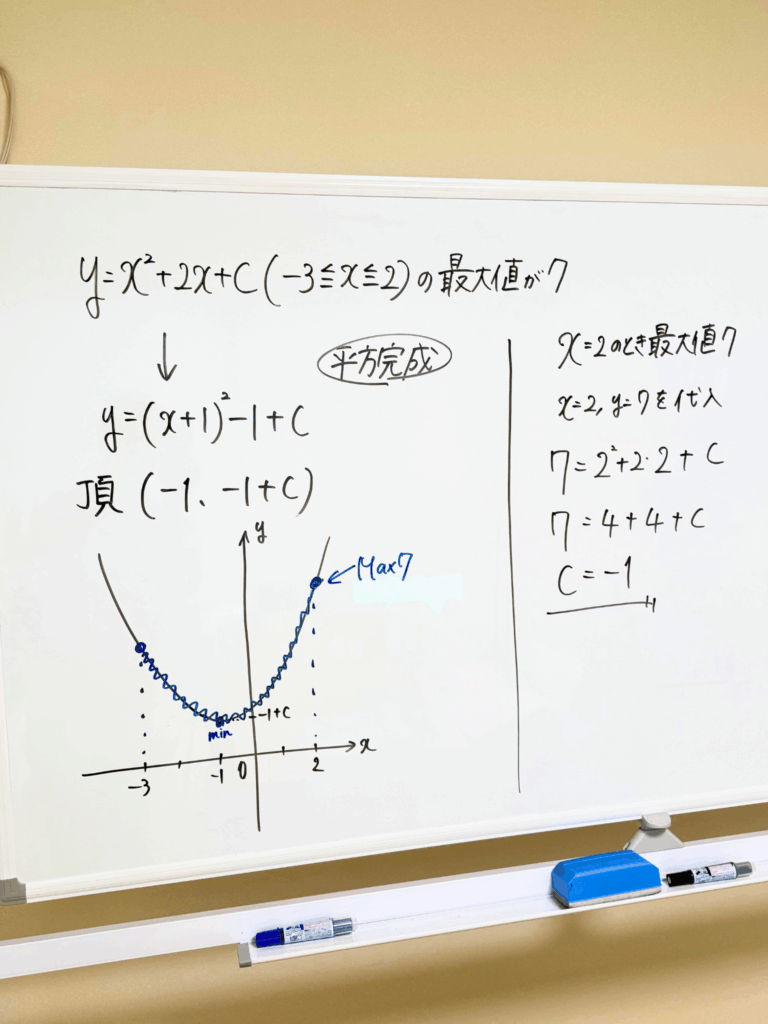 y=x²+2x+C (-3≦x≦2)の最大値が7
↓
平方完成
y=(x+1)²-1+C
頂 (-1、-1+C)
y
Max7
-1+C
min
x
-3
-1
0
2
x=2のとき最大値7
x=2, y=7を代入
7=2²+2·2+C
7=4+4+C
C=-1